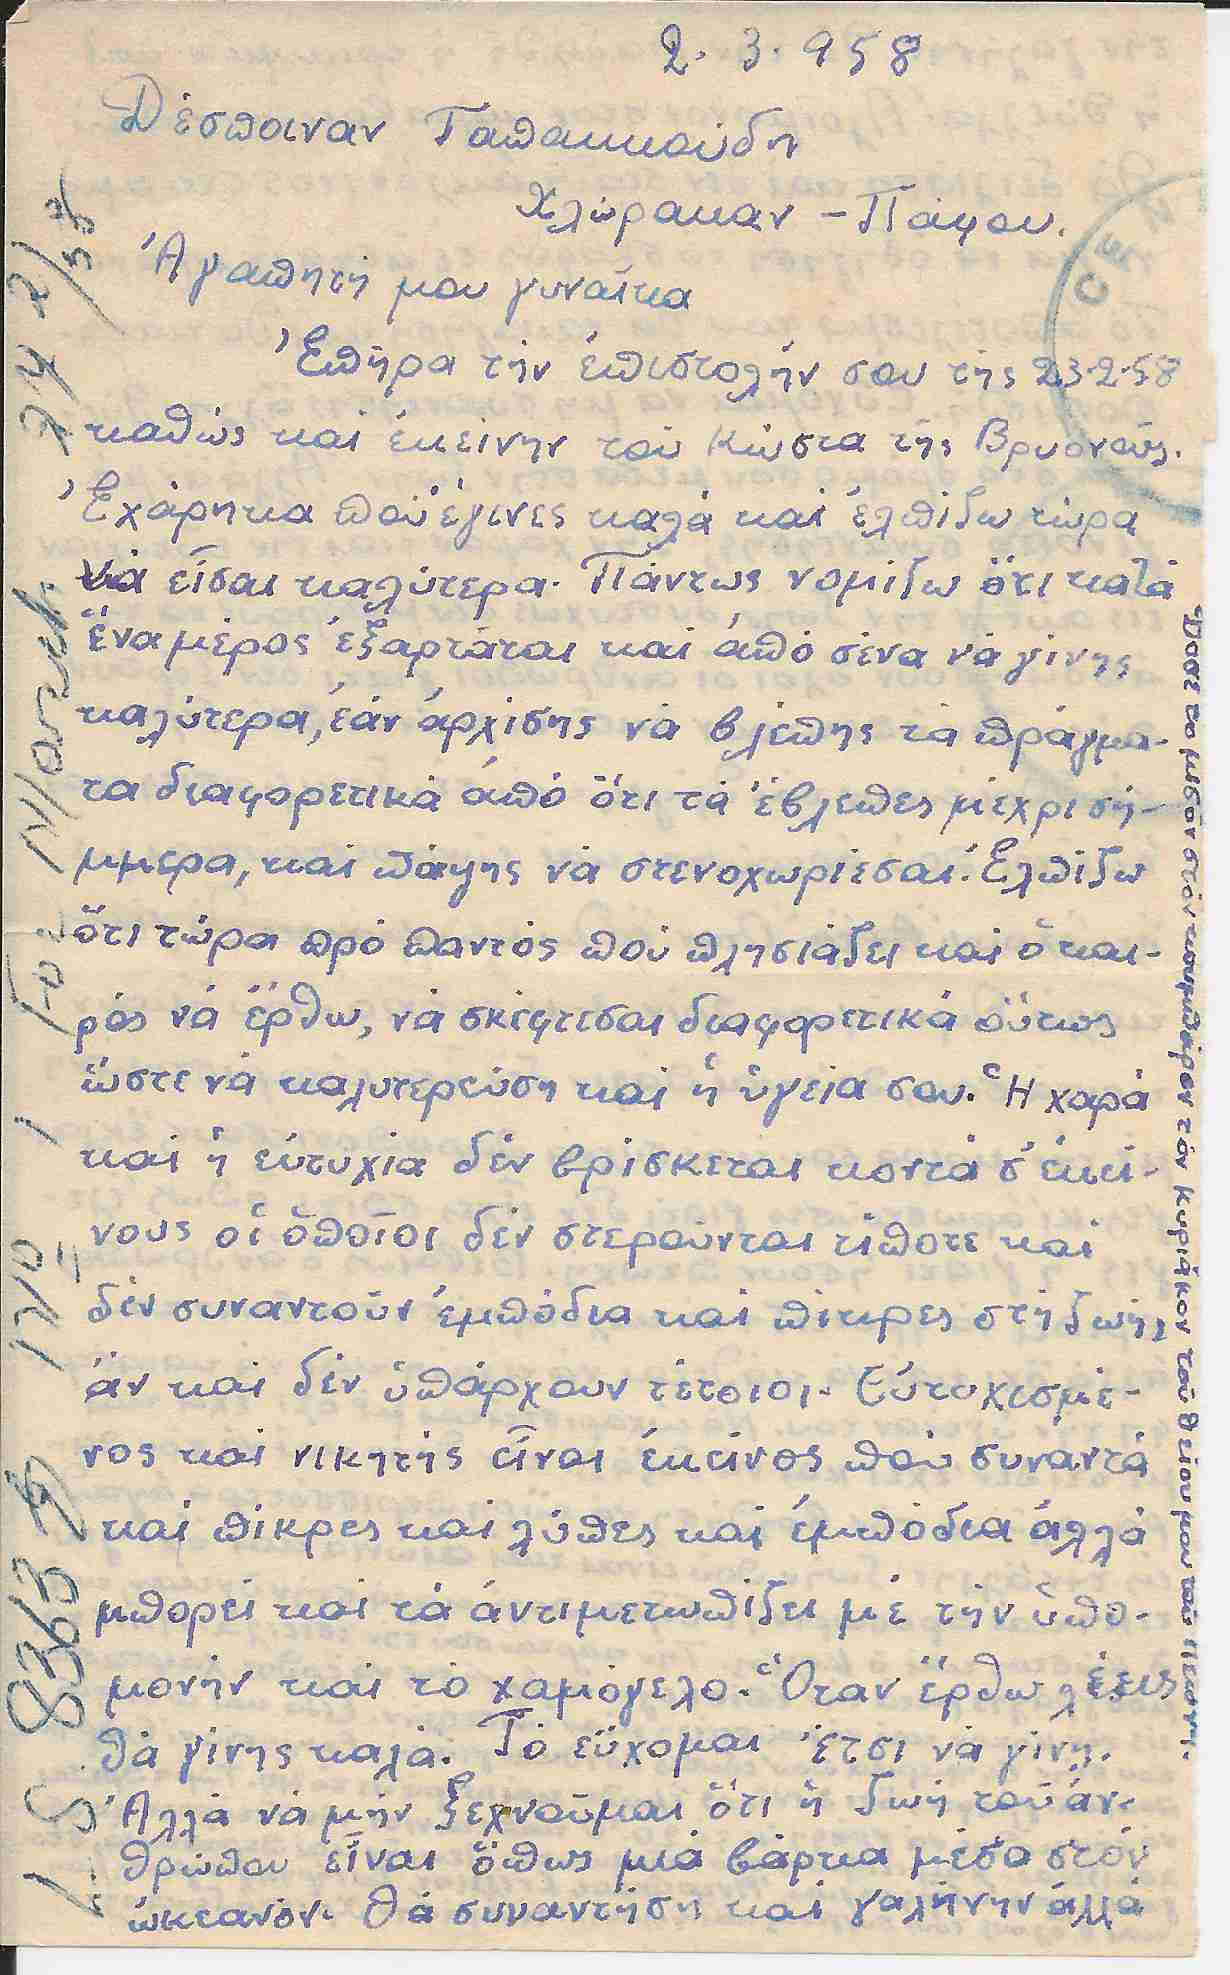 2. 3. 958
Δέσποιναν Ταπακκούδη
Χλώρακαν - Πάφου.
Ἀγαπητή μου γυναῖκα
Ἐπῆρα τήν ἐπιστολήν σου τῆς 23-2-58
καθώς καί ἐκείνην τοῦ Κώστα τῆς Βρυονοῦς.
Ἐχάρηκα ποῦ ἔγινες καλά καί ἐλπίζω τώρα
νά εἶσαι καλύτερα. Πάντως νομίζω ὅτι κατά
ἕνα μέρος ἐξαρτᾶται καί ἀπό σένα νά γίνης
καλύτερα, ἐάν ἀρχίσης νά βλέπης τά πράγμα-
τα διαφορετικά ἀπό ὅτι τά ἔβλεπες μέχρι σή-
μμερα, καί πάψης νά στενοχωριέσαι. Ἐλπίζω
ὅτι τώρα πρό παντός πού πλησιάζει καί ὁ και-
ρός νά ἔρθω, νά σκέφτεσαι διαφορετικά οὕτως
ὥστε νά καλυτερεύση καί ἡ ὑγεία σου. Ἡ χαρά
καί ἡ εὐτυχία δέν βρίσκεται κοντά σ' ἐκεί-
νους οἱ ὁποῖοι δέν στεροῦνται τίποτε καί
δέν συναντοῦν ἐμπόδια καί πίκρες στή ζωή,
ἄν καί δέν ὑπάρχουν τέτοιοι. Εὐτυχισμέ-
νος καί νικητής εἶναι ἐκεῖνος πού συναντά
καί πίκρες καί λύπες καί ἐμπόδια ἀλλά
μπορεί καί τά ἀντιμετωπίζει μέ τήν ὑπο-
μονήν καί τό χαμόγελο. Ὅταν ἔρθω λέεις
θά γίνης καλά. Τό εὔχομαι ἔτσι νά γίνη.
Ἀλλά νά μήν ξεχνοῦμαι ὅτι ἡ ζωή τοῦ ἀν-
θρώπου εἶναι ὅπως μιά βάρκα μέσα στόν
ὠκεανόν. Θά συναντήση καί γαλήνην ἀλλά
Δῶσε το μισόν στόν κουμπάρον τόν Κυριάκον τοῦ θείου μου τοῦ
8363
CE